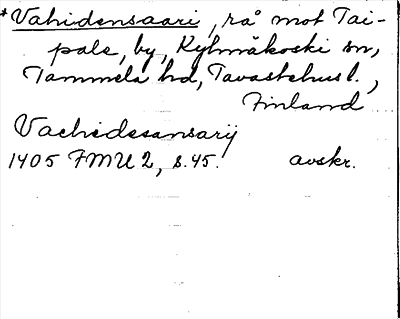 *Vahidensaari, rå mot Tai-
pale, by, Kylmäkoski sn,
Tammela hd, Tavastehus l.,
Finland
Vachidesansarÿ
1405 FMU 2, s. 45. avskr.